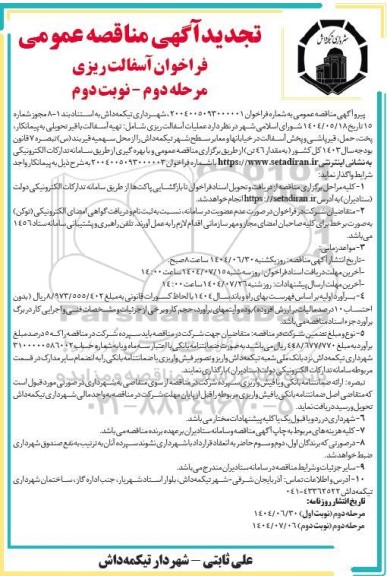 شهرداری تیکمه‌داش
تجدید آگهی مناقصه عمومی
فراخوان آسفالت ریزی
مرحله دوم - نوبت دوم
پیرو آگهی مناقصه عمومی به شماره فراخوان ۲۰۰۴۰۰۵۰۹۳۰۰۰۰۰۱، شهرداری تیکمه‌داش به استناد بند ۱-۸ مجوز شماره
۱۵ تاریخ ۱۴۰۴/۰۵/۱۸ شورای اسلامی شهر در نظر دارد عملیات آسفالت ریزی شامل: تهیه آسفالت با قیر تحویلی به پیمانکار،
پخت، حمل، قیرپاشی و پخش آسفالت در خیابانها و معابر سطح شهر تیکمه‌داش را از محل سهمیه قیر بند (س) تبصره ۷ قانون
بودجه سال ۱۴۰۳ کل کشور (به مقدار ۴۶ تن) از طریق برگزاری مناقصه عمومی و با بهره گیری از طریق سامانه تدارکات الکترونیکی
به نشانی اینترنتی https://www.setadiran.ir با شماره فراخوان ۲۰۰۴۰۰۵۰۹۳۰۰۰۰۰۳ به شرح ذیل به پیمانکار واجد
شرایط واگذار نماید:
۱- کلیه مراحل برگزاری مناقصه از دریافت و تحویل اسناد فراخوان تا بازگشایی پاکت‌ها از طریق سامانه تدارکات الکترونیکی دولت
(ستاد ایران) به آدرس https://setadiran.ir انجام خواهد شد.
۲- متقاضیان شرکت در فراخوان در صورت عدم عضویت در سامانه، نسبت به ثبت نام و دریافت گواهی امضای الکترونیکی (توکن)
به صورت برخط برای کلیه صاحبان امضای مجاز و مهر سازمانی اقدام لازم را به عمل آورند. تلفن راهبری و پشتیبانی سامانه ستاد ۱۴۵۶
می‌باشد.
۳- مواعد زمانی:
- تاریخ انتشار آگهی مناقصه: روز یکشنبه ۱۴۰۴/۰۶/۳۰ ساعت ۸ صبح.
- آخرین مهلت دریافت اسناد فراخوان: روز سه شنبه ۱۴۰۴/۰۷/۱۵ ساعت ۱۴:۰۰
- آخرین مهلت ارسال پیشنهادات: روز شنبه ۱۴۰۴/۰۷/۲۶ ساعت ۱۴:۰۰
۴- برآورد اولیه بر اساس فهرست بهای راه و باند سال ۱۴۰۴ با لحاظ کسورات قانونی به مبلغ ۸/۹۷۳/۵۵۵/۴۰۲ ریال (بدون
احتساب ۱۰ درصد مالیات بر ارزش افزوده) بوده و آیتمهای برآورد، حجم کار و برخی از جزئیات و مشخصات فنی و اجرایی کار در برگ
برآورد جزء اسناد مناقصه می‌باشد.
۵- نوع و مبلغ تضمین شرکت در مناقصه: متقاضیان جهت شرکت در مناقصه باید سپرده شرکت در مناقصه را که ۵ درصد مبلغ
برآورد به مبلغ ۴۴۸/۶۷۷/۷۷۰ ریال می‌باشد به صورت ضمانتنامه بانکی با اعتبار سه ماه و یا به شماره حساب
شهرداری تیکمه‌داش نزد بانک ملی شعبه تیکمه‌داش واریز و تصویر فیش واریزی یا ضمانتنامه بانکی را به انضمام سایر مدارک در قسمت
مربوطه سامانه تدارکات الکترونیکی دولت (ستاد ایران) بارگذاری نمایند.
تبصره: ارائه ضمانتنامه بانکی و یا فیش واریزی سپرده شرکت در مناقصه از سوی متقاضی به شهرداری در صورتی مورد قبول است
که متقاضی اصل ضمانتنامه بانکی یا فیش واریزی مربوطه را قبل از پایان مهلت شرکت در مناقصه به واحد مالی شهرداری تیکمه‌داش
تحویل و رسید دریافت نماید.
۶- شهرداری در رد و یا قبول یک یا کلیه پیشنهادات مختار می‌باشد.
۷- کلیه هزینه های مربوط به چاپ آگهی مناقصه و سامانه ستاد ایران بر عهده برنده مناقصه می‌باشد.
۸- در صورتی که برندگان اول، دوم و سوم حاضر به انعقاد قرارداد با شهرداری نشوند سپرده آنان به ترتیب به نفع صندوق شهرداری
ضبط خواهد شد.
۹- سایر جزئیات و شرایط مناقصه در سامانه ستاد ایران مندرج می‌باشد.
۱۰- آدرس و اطلاعات تماس: آذربایجان شرقی- شهر تیکمه‌داش، بلوار استاد شهریار، جنب اداره گاز، ساختمان شهرداری
تیکمه‌داش ۴۳۳۶۲۵۲۲-۰۴۱
تاریخ انتشار روزنامه:
مرحله دوم (نوبت اول) ۱۴۰۴/۰۶/۳۰
مرحله دوم (نوبت دوم) ۱۴۰۴/۰۷/۰۶
علی ثابتی - شهردار تیکمه‌داش